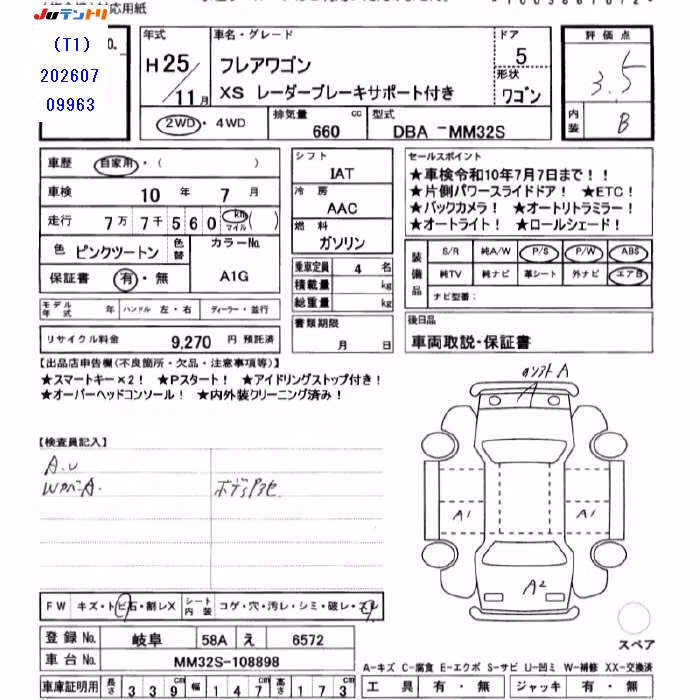 対応用紙
Juテントリ
(T1)
202607
09963
No.
年式
H25/11月
車名・グレード
フレアワゴン
XS レーダーブレーキサポート付き
ドア
5
形状
ワゴン
評価点
3.5
内装
B
2WD・4WD
排気量
660 cc
型式
DBA-MM32S
車歴 自家用・( )
車検 10年 7月
走行 7万7千560 km マイル ( )
色 ピンクツートン
色替
カラーNo. A1G
保証書 有・無
シフト
IAT
冷房
AAC
燃料
ガソリン
乗車定員 4名
積載量 kg
総重量 kg
セールスポイント
★車検令和10年7月7日まで!!
★片側パワースライドドア! ★ETC!
★バックカメラ! ★オートリトラミラー!
★オートライト! ★ロールシェード!
装備品
S/R 純A/W P/S P/W ABS
純TV 純ナビ 革シート 外ナビ エアB
ナビ型番:
モデル年式 年 ハンドル 左・右 ディーラー・並行
リサイクル料金 9,270 円 預託済
書類期限
月 日
後日品
車両取説・保証書
【出品店申告欄(不良箇所・欠品・注意事項等)】
★スマートキー×2! ★Pスタート! ★アイドリングストップ付き!
★オーバーヘッドコンソール! ★内外装クリーニング済み!
【検査員記入】
A.U
A
A
A1
A1
A2
FW キズ・トビ石・割レX
シート内装 コゲ・穴・汚レ・シミ・破レ・スレ
登録No. 岐阜 58A え 6572
車台No. MM32S-108898
車庫証明用 長さ 339 幅 147 高さ 173
スペア
A-キズ C-腐食 E-エクボ S-サビ U-凹ミ W-補修 XX-交換済
工具 有・無 ジャッキ 有・無